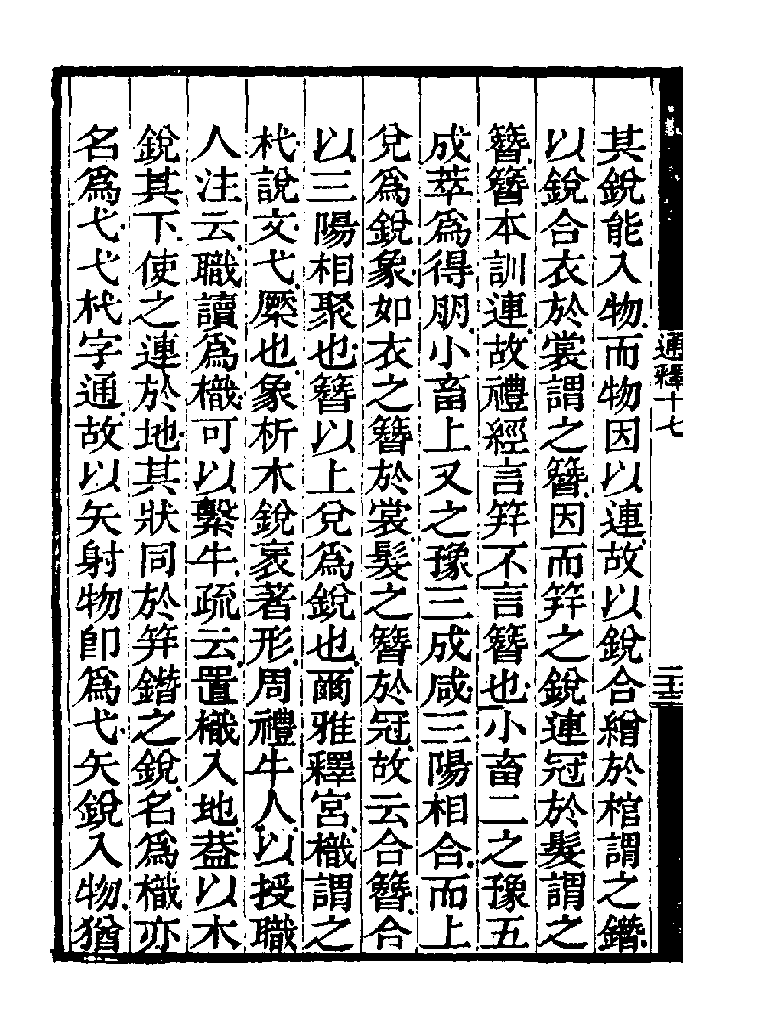 其銳能入物而物因以連故以銳合繒於棺謂之鐕
以銳合衣於裳謂之簪因而笄之銳連冠於髮謂之
簪簪本訓連故禮經言笄不言簪也小畜二之豫五
成萃爲得朋小畜上又之豫三成咸三陽相合而上
兌爲銳象如衣之簪於裳髮之簪於冠故云合簪合
以三陽相聚也簪以上兌爲銳也爾雅釋宮樴謂之
杙說文弋橜也象析木銳衺著形周禮牛人以授職
人注云職讀爲樴可以繫牛疏云置樴入地葢以木
銳其下使之連於地其狀同於笄鐕之銳名爲樴亦
名爲弋弋杙字通故以矢射物卽爲弋矢銳入物猶
通釋十七